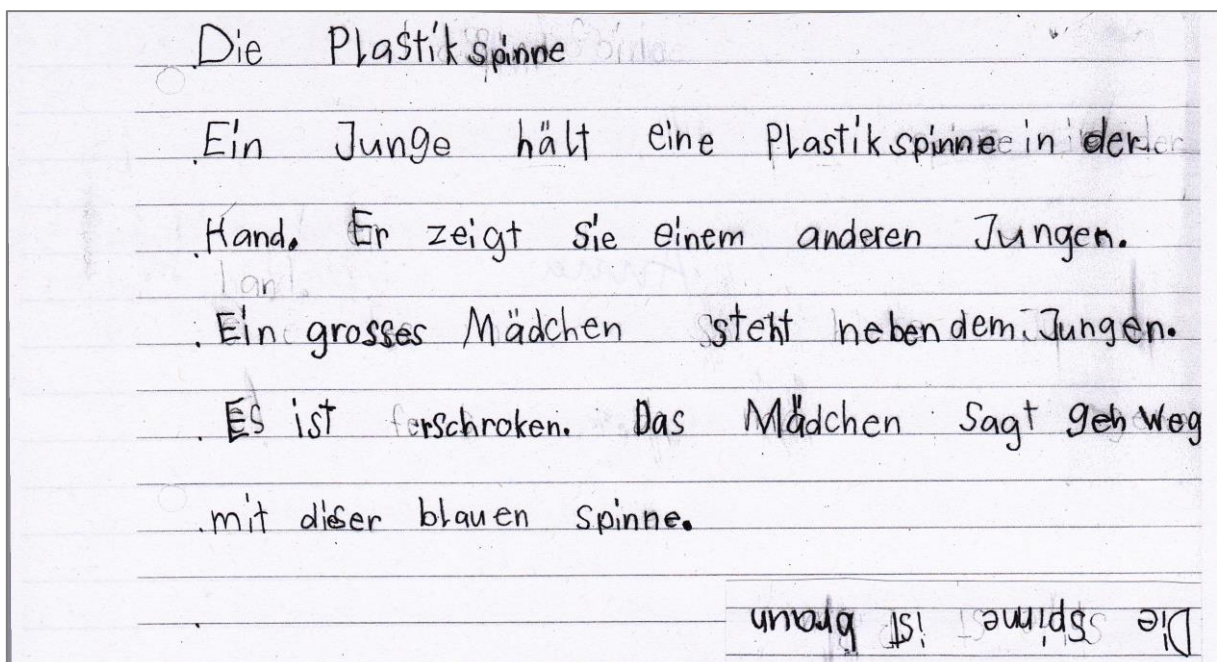 Die Plastikspinne
Ein Junge hält eine Plastikspinne in der
Hand. Er zeigt sie einem anderen Jungen.
Ein grosses Mädchen steht neben dem Jungen.
Es ist erschroken. Das Mädchen sagt geh weg
mit diser blauen spinne.
Die spinne ist braun